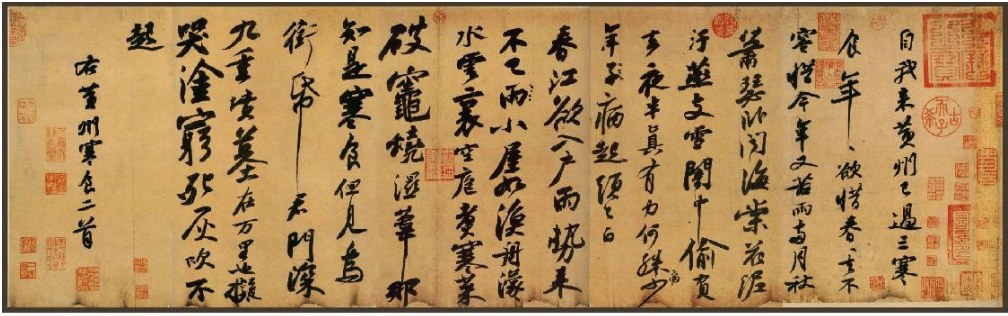 自我來黃州已過三寒
食年〻欲惜春〻去不
容惜今年又苦雨兩月秋
蕭瑟卧聞海棠花泥
汙燕支雪闇中偷負
去夜半真有力何殊病少
年子病起須已白
春江欲入戶雨勢來
不已雨小屋如漁舟濛〻
水雲裏空庖煮寒菜
破竈燒濕葦那
知是寒食但見烏
銜帋君門深
九重墳墓在万里也擬
哭塗窮死灰吹不
起
右黃州寒食二首
古希天子